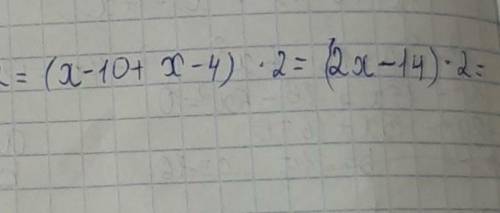 = (x-10+ x-4) ·2= (2x-14)·2=